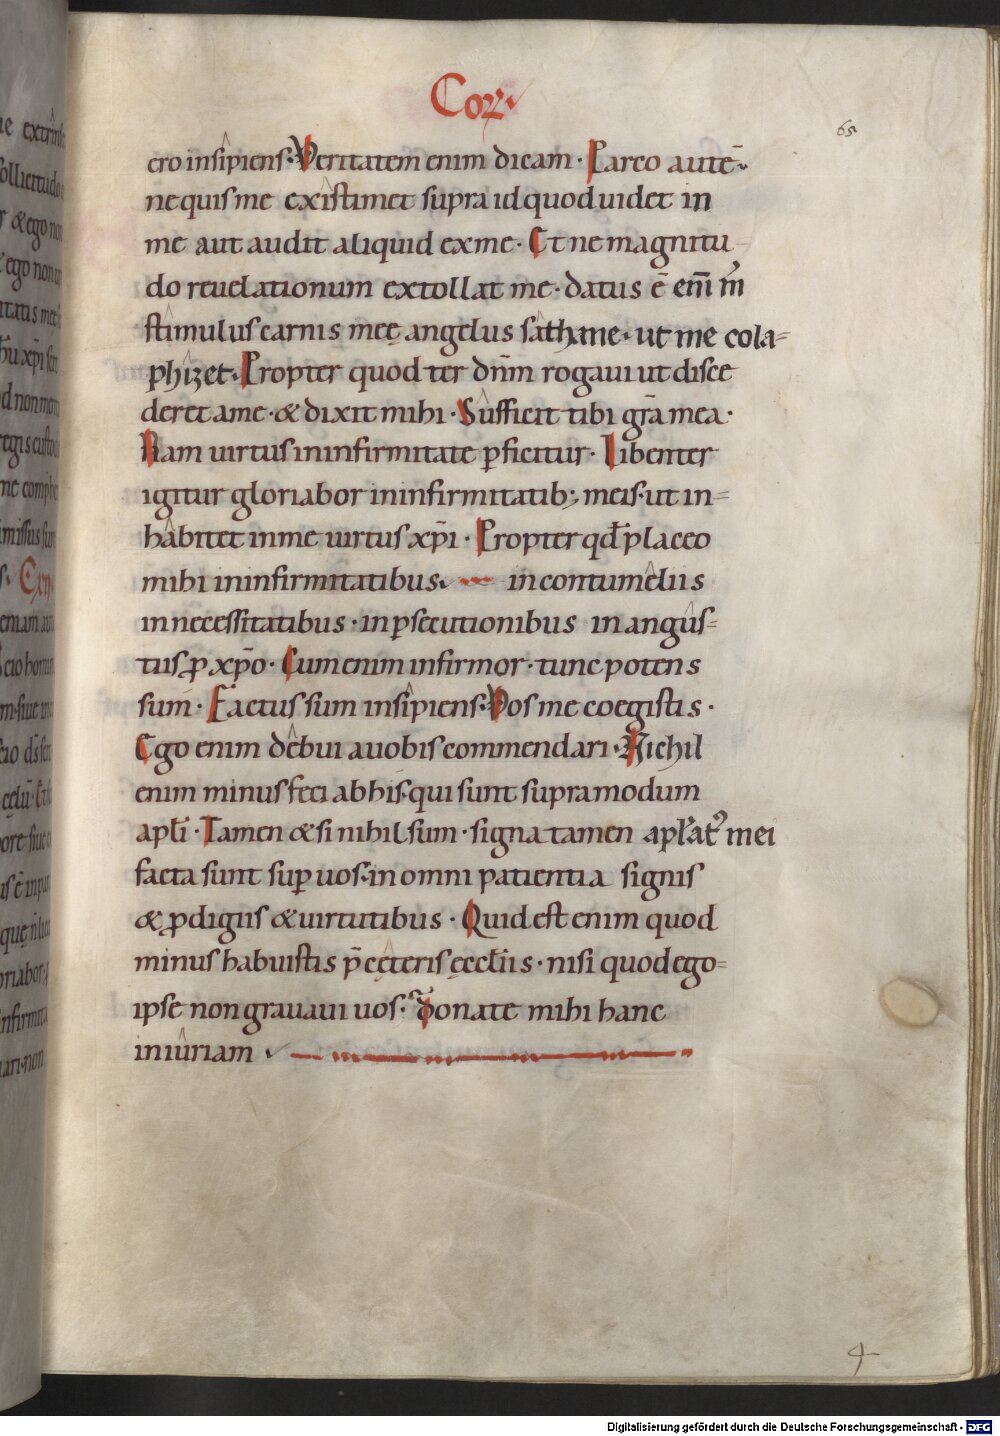 Cor.
65
ero insipiens· Veritatem enim dicam· Parco autē·
ne quis me existimet supra id quod uidet in
me aut audit aliquid ex me· Et ne magnitu-
do reuelationum extollat me· datus ē eni̅ m̅
stimulus carnis meę angelus sathane· ut me cola-
phizet· Propter quod ter dn̄m rogaui ut disce
deret a me· & dixit mihi· Sufficit tibi gr̄a mea·
Nam uirtus in infirmitate ꝑficitur· Libenter
igitur gloriabor in infirmitatib; meis· ut in-
habitet in me uirtus xp̄i· Propter qd̄ placeo
mihi in infirmitatibus in contumeliis
in necessitatibus· in ꝑsecutionibus in angus-
tiis ꝓ xp̄o· Cum enim infirmor· tunc potens
sum· Factus sum insipiens· Vos me coegistis·
Ego enim debui a uobis commendari· Nichil
enim minus feci ab his· qui sunt supra modum
apl̄i· Tamen & si nihil sum· signa tamen apl̄at᷒ mei
facta sunt suꝑ uos· in omni patientia signis
& ꝓdigiis & uirtutibus· Quid est enim quod
minus habuistis p̄ cęteris ęccl̄iis· nisi quod ego-
ipse non grauaui uos· Donate mihi hanc
iniuriam
4
Digitalisierung gefördert durch die Deutsche Forschungsgemeinschaft - DFG